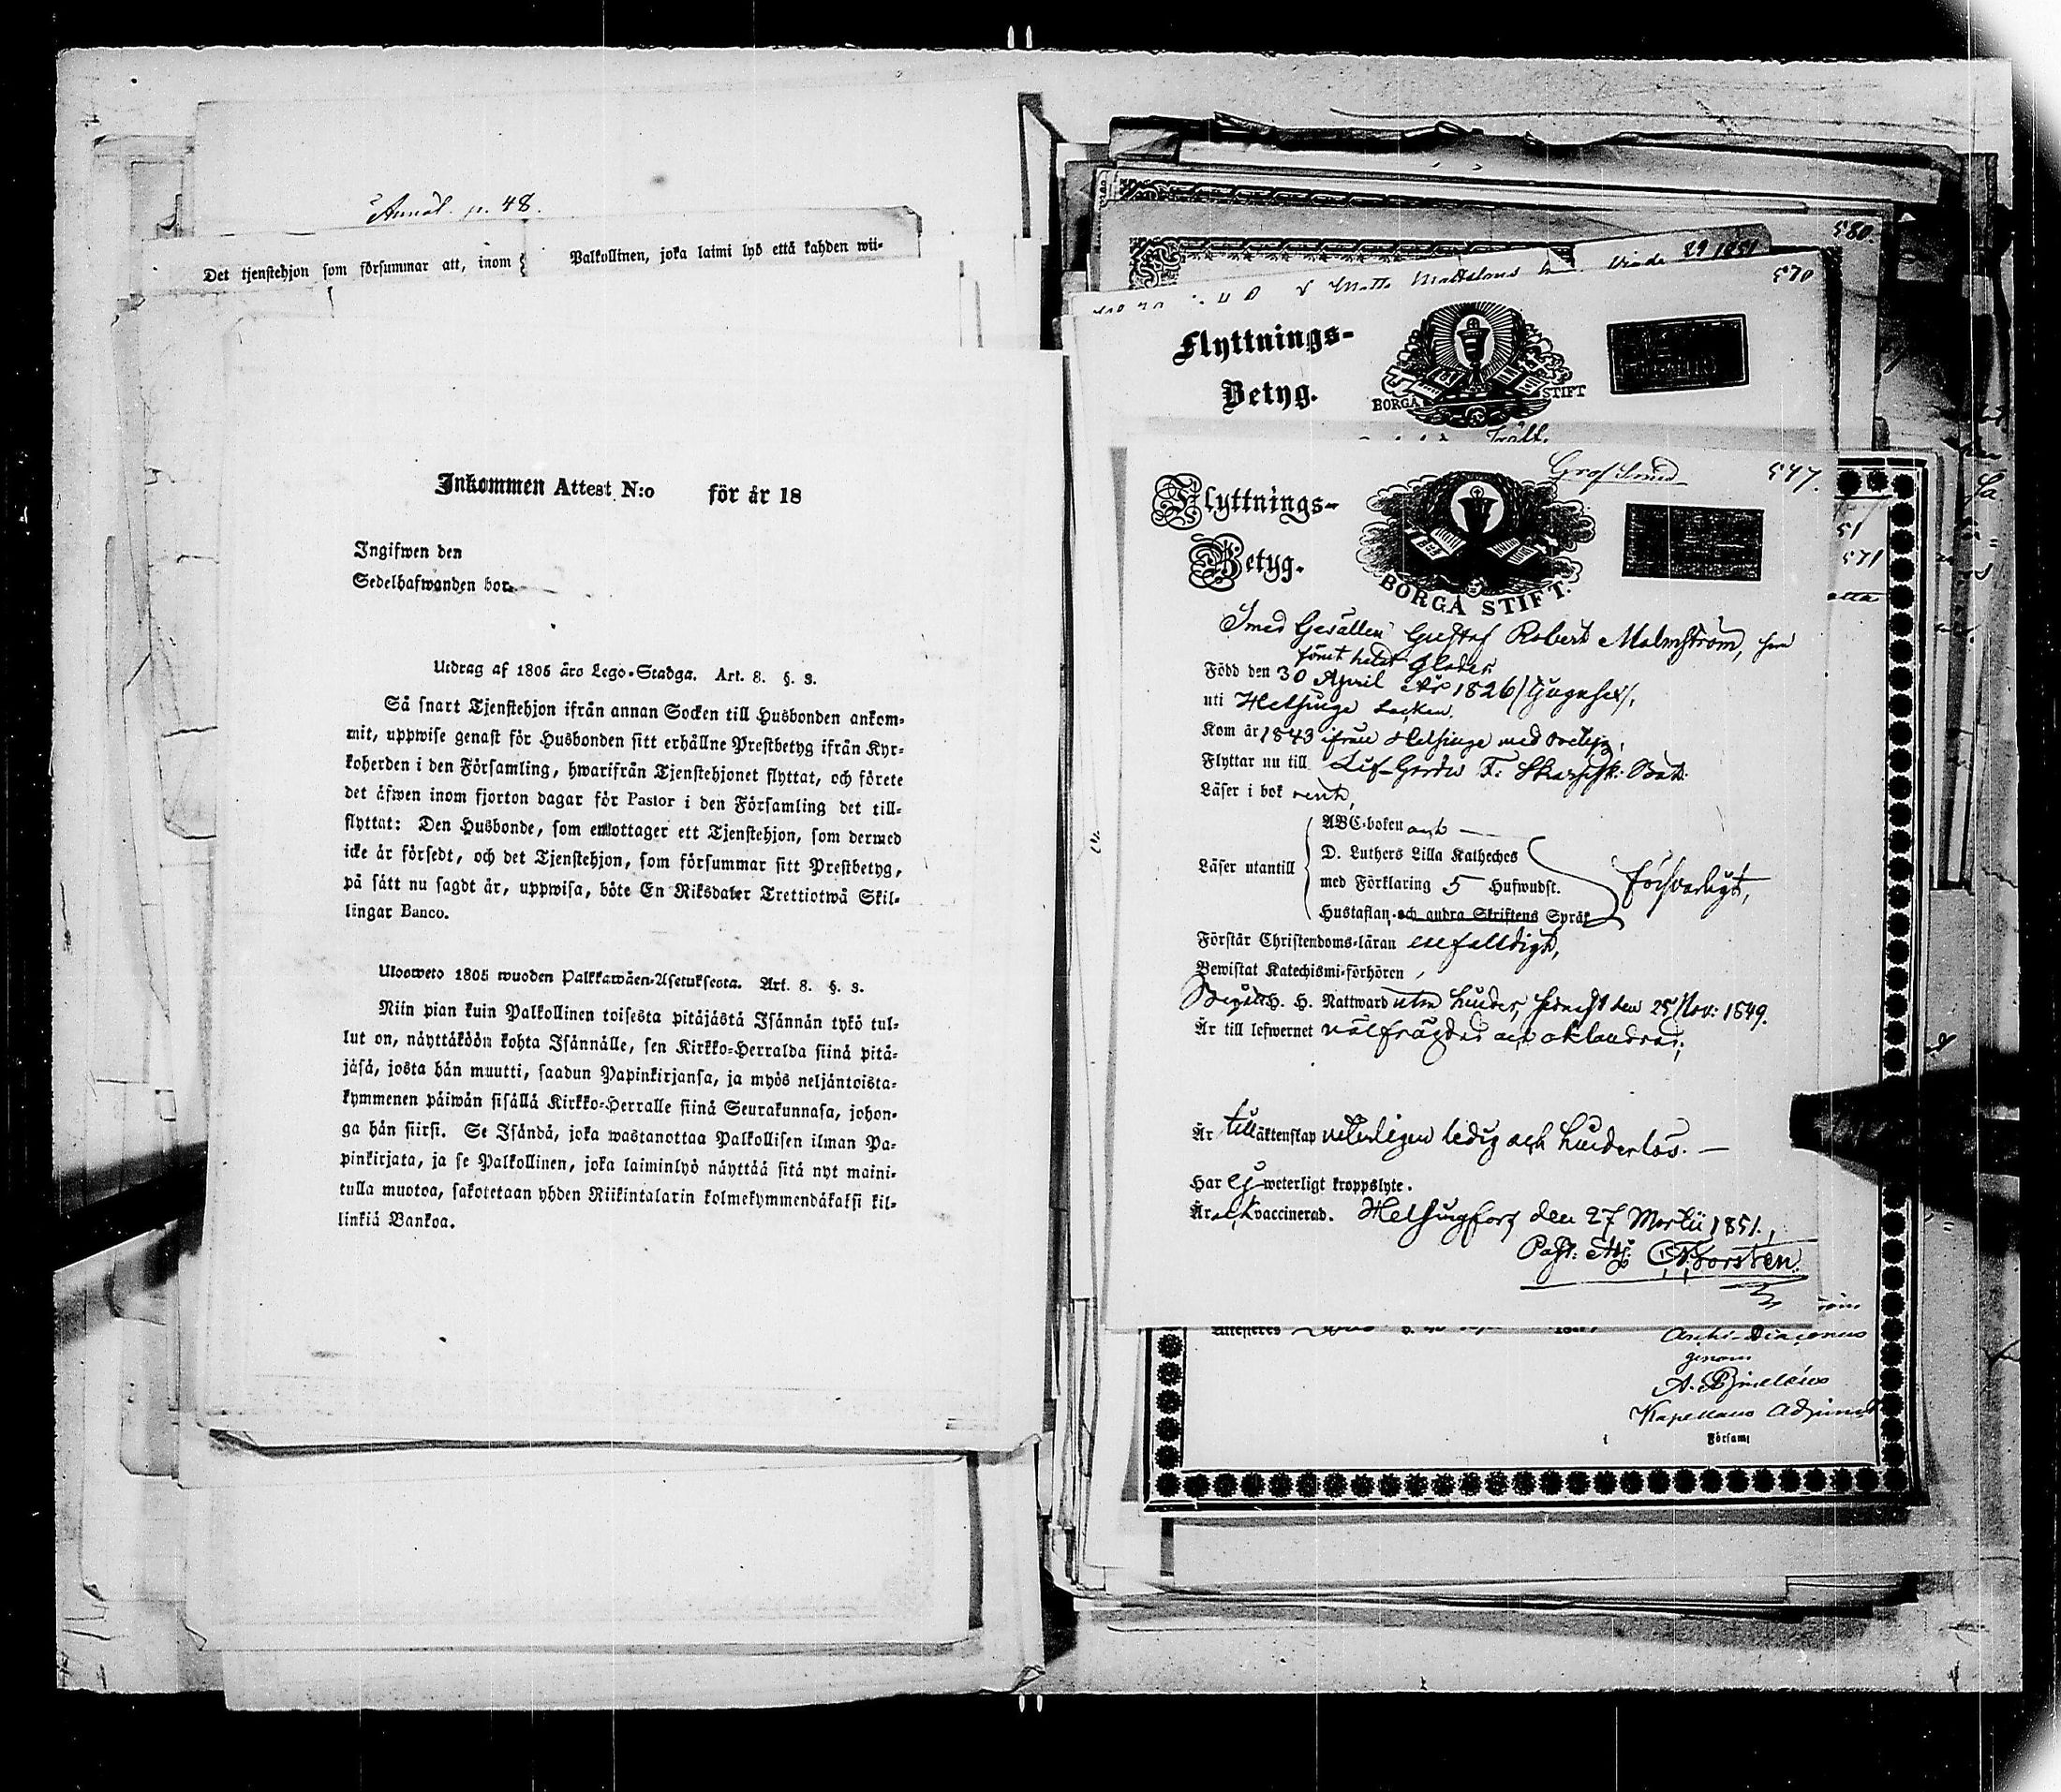 Annot. p. 48.
Det tjenstehjon som försummar att, inom
Palkollinen, joka laimi lyö että kahden wii-
Inkommen Attest N:o för år 18
Ingifwen den
Sedelhafwanden bor
Utdrag af 1805 års Lego-Stadga. Art. 8. §. 3.
Så snart Tjenstehjon ifrån annan Socken till Husbonden ankom-
mit, uppwise genast för Husbonden sitt erhållne Prestbetyg ifrån Kyr-
koherden i den Församling, hwarifrån Tjenstehjonet flyttat, och förete
det äfwen inom fjorton dagar för Pastor i den Församling det till-
flyttat: Den Husbonde, som emottager ett Tjenstehjon, som dermed
icke är försedt, och det Tjenstehjon, som försummar sitt Prestbetyg,
på sätt nu sagdt är, uppwisa, böte En Riksdaler Trettiotwå Skil-
lingar Banco.
Ulosweto 1805 wuoden Palkkawäen-Asetuksesta. Art. 8. §. 3.
Niin pian kuin Palkollinen toisesta pitäjästä Isännän tykö tul-
lut on, näyttäköön kohta Isännälle, sen Kirkko-Herralda siinä pitä-
jäsä, josta hän muutti, saadun Papinkirjansa, ja myös neljäntoista-
kymmenen päiwän sisällä Kirkko-Herralle siinä Seurakunnasa, johon-
ga hän siirsi. Se Isändä, joka wastanottaa Palkollisen ilman Pa-
pinkirjata, ja se Palkollinen, joka laiminlyö näyttää sitä nyt maini-
tulla muotoa, sakotetaan yhden Riikintalarin kolmekymmendäkaksi kil-
linkiä Bankoa.
580.
29 1851
570
Flyttnings-
Betyg.
BORGÅ STIFT
Grofsmed
547.
Flyttnings-
Betyg.
BORGÅ STIFT.
Smed Gesällen Gustaf Robert Malmström, som
förut hetat Glader
Född den 30 April År 1826
uti Helsinge Socken.
Kom år 1843 ifrån Helsinge med betyg,
Flyttar nu till Lif-Gardes F. Skarpsk: Bat:
Läser i bok rent,
ABC-boken och
Läser utantill
D. Luthers Lilla Katheches
med Förklaring 5 Hufwudst.
försvarligt,
Hustaflan och andra Skriftens Språk
Förstår Christendoms-läran enfalldigt,
Bewistat Katechismi-förhören
Begått H. H. Nattward utan hinder, senast den 25 Nov: 1849.
Är till lefwernet välfrägdad och oklandrad;
Är till äktenskap veterligen ledig och hinderlös. —
Har ej weterligt kroppslyte.
Är och vaccinerad. Helsingfors den 27 Martii 1851.
Past: Adj: Forsten
51
571
Attesteras
Archi-Diaconus
genom
Kapellans Adjunct
i Församl